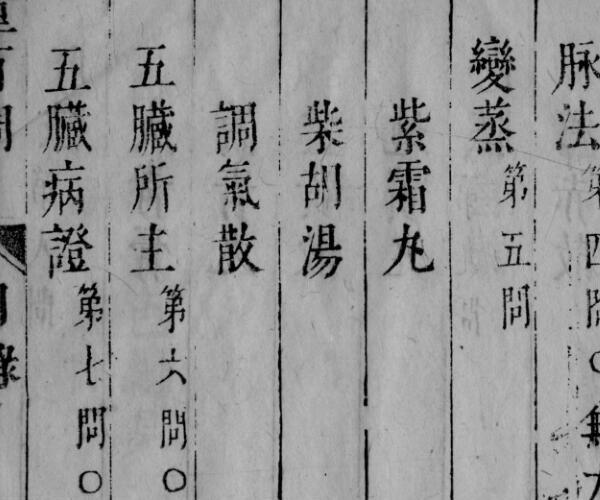 脉法 第四問○無方
變蒸 第五問
紫霜丸
柴胡湯
調氣散
五臟所主 第六問○
五臟病證 第七問○
目錄